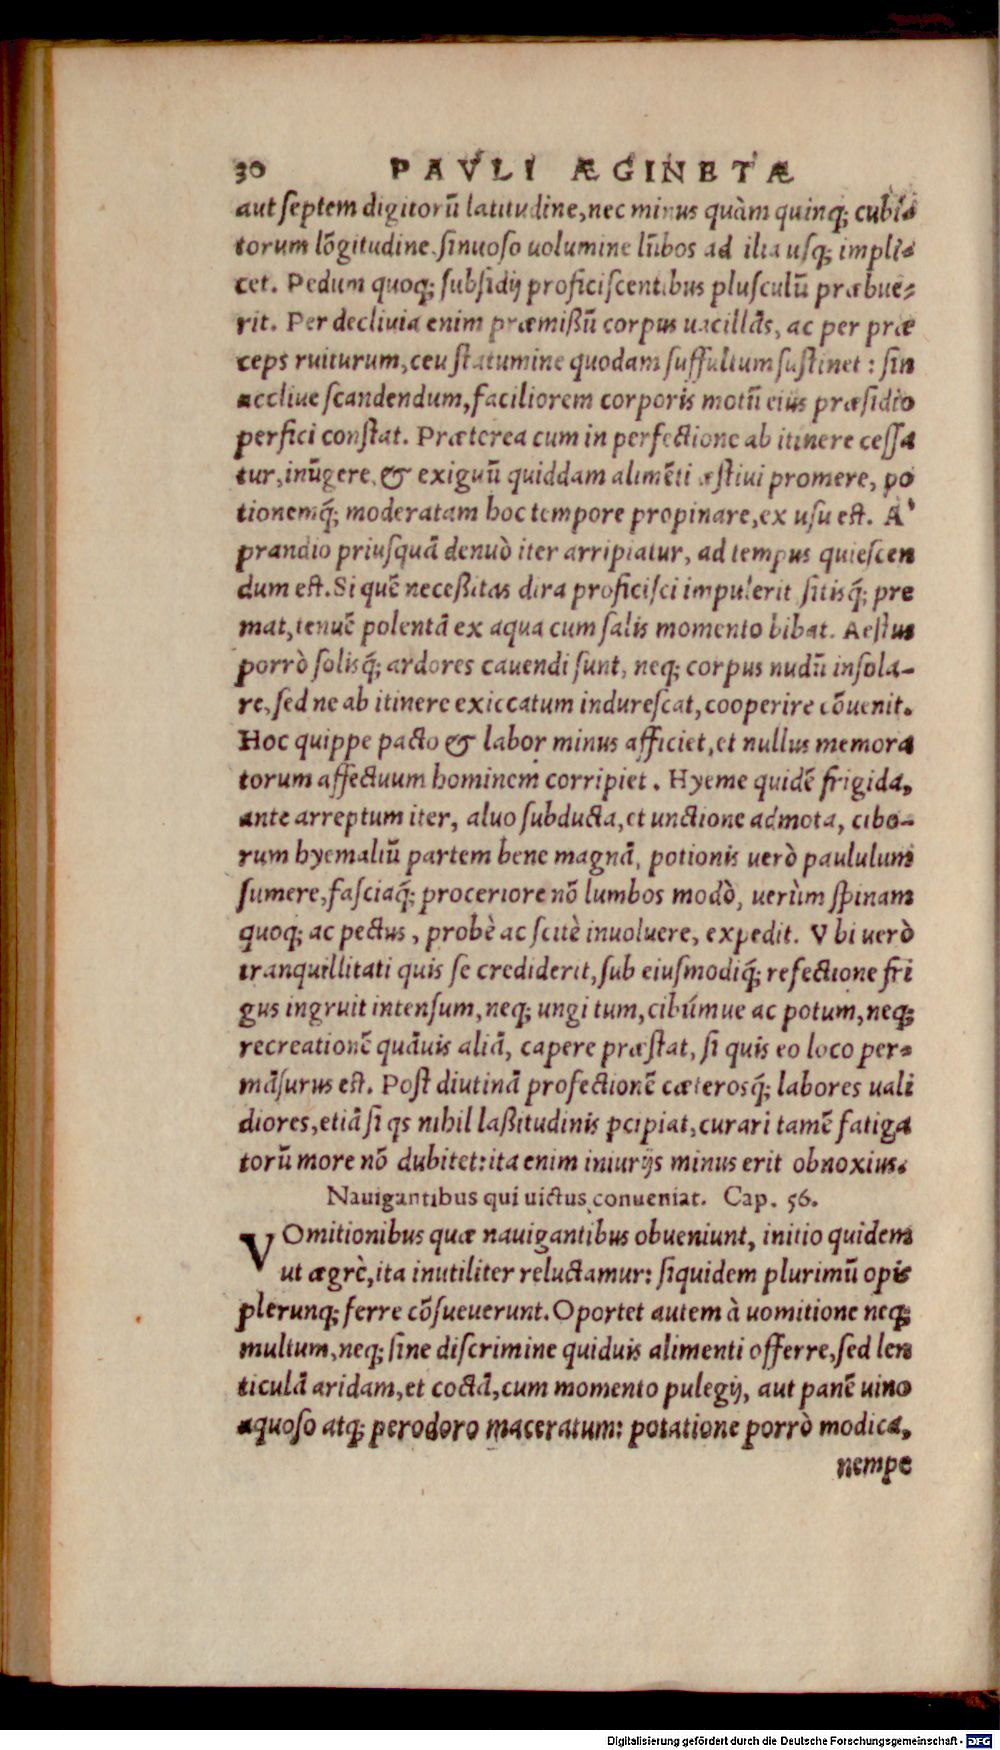 30 PAVLI ÆGINETÆ
aut ſeptem digitorū latitudine, nec minus quàm quinq; cubi-
torum lōgitudine. ſinuoſo uolumine lūbos ad ilia uſq; impli-
cet. Pedum quoq; ſubſidij proficiſcentibus pluſculū præbue-
rit. Per decliuia enim præmißū corpus uacillās, ac per præ
ceps ruiturum, ceu ſtatumine quodam ſuffultum ſuſtinet : ſin
accliue ſcandendum, faciliorem corporis motū eius præſidio
perfici conſtat. Præterea cum in perfectione ab itinere ceſſa
tur, inūgere, & exiguū quiddam alimēti æſtiui promere, po
tionemq́; moderatam hoc tempore propinare, ex uſu eſt. A'
prandio priuſquā denuò iter arripiatur, ad tempus quieſcen
dum eſt. Si quē neceßitas dira proficiſci impulerit ſitisq́; pre
mat, tenuē polentā ex aqua cum ſalis momento bibat. Aeſtus
porrò ſolisq́; ardores cauendi ſunt, neq; corpus nudū inſola-
re, ſed ne ab itinere exiccatum indureſcat, cooperire cōuenit.
Hoc quippe pacto & labor minus afficiet, et nullus memora
torum affectuum hominem corripiet. Hyeme quidē frigida,
ante arreptum iter, aluo ſubducta, et unctione admota, cibo-
rum hyemaliū partem bene magnā, potionis uerò paululum
ſumere, faſciaq́; proceriore nō lumbos modò, uerùm ſpinam
quoq; ac pectus, probè ac ſcitè inuoluere, expedit. Vbi uerò
tranquillitati quis ſe crediderit, ſub eiuſmodiq́; refectione fri
gus ingruit intenſum, neq; ungi tum, cibúmue ac potum, neq;
recreationē quāuis aliā, capere præſtat, ſi quis eo loco per-
māſurus eſt. Poſt diutinā profectionē cæterosq́; labores uali
diores, etiā ſi qs nihil laßitudinis pcipiat, curari tamē fatiga
torū more nō dubitet: ita enim iniurijs minus erit obnoxius.
Nauigantibus qui uictus conueniat. Cap. 56.
VOmitionibus quæ nauigantibus obueniunt, initio quidem
ut ægrè, ita inutiliter reluctamur: ſiquidem plurimū opis
plerunq; ferre cōſueuerunt. Oportet autem à uomitione neq;
multum, neq; ſine diſcrimine quiduis alimenti offerre, ſed len
ticulā aridam, et coctā, cum momento pulegij, aut panē uino
aquoſo atq; perodoro maceratum: potatione porrò modica,
nempe
Digitalisierung gefördert durch die Deutsche Forschungsgemeinschaft - DFG